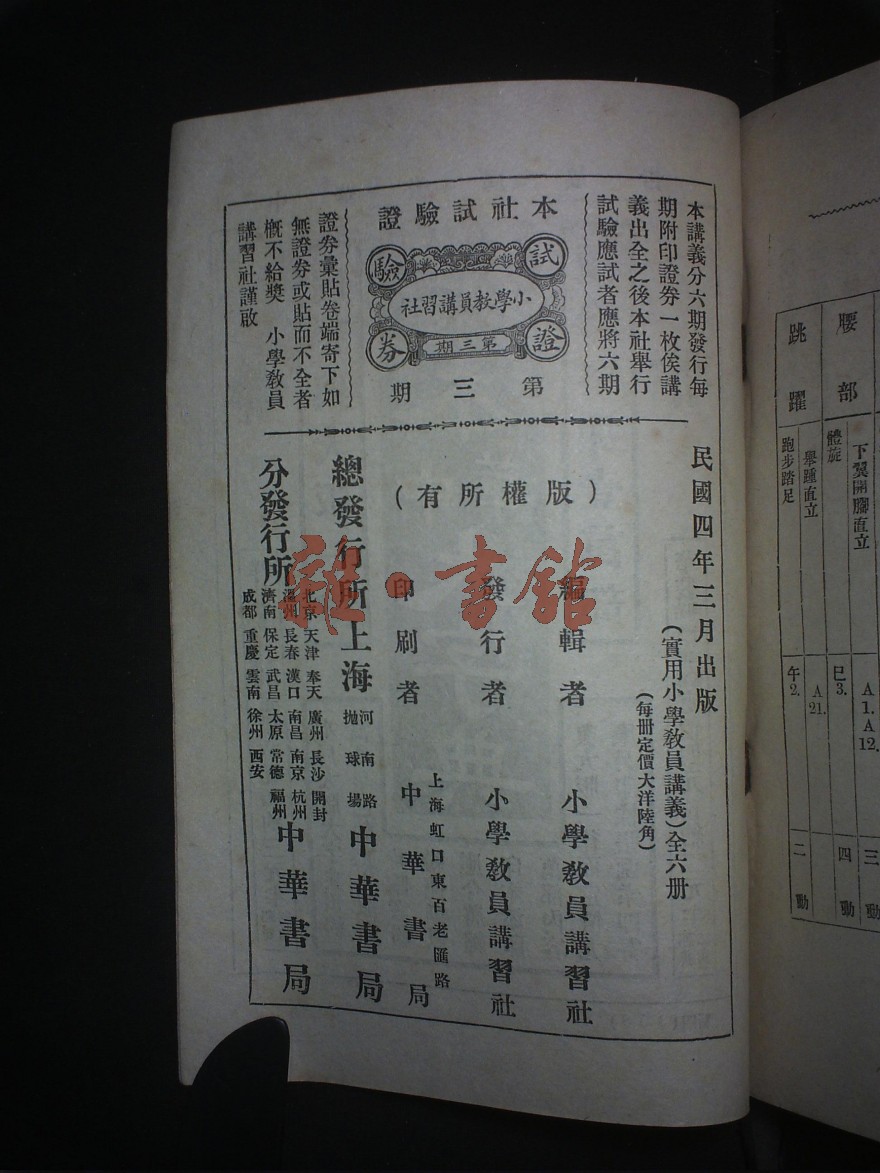 本講義分六期發行每
期附印證券一枚俟講
義出全之後本社舉行
試驗應試者應將六期
本社試驗證
試驗證券
小學教員講習社
第三期
第三期
證券彙貼卷端寄下如
無證券或貼而不全者
概不給獎　小學教員
講習社謹啟
民國四年三月出版
（實用小學教員講義）全六册
（每册定價大洋陸角）
（版權所有）
編輯者　小學教員講習社
發行者　小學教員講習社
印刷者　上海虹口東百老匯路　中華書局
總發行所　上海　河南路拋球場　中華書局
分發行所
北京　天津　奉天　廣州　長沙　開封
溫州　長春　漢口　南昌　南京　杭州
濟南　保定　武昌　太原　常德　福州
成都　重慶　雲南　徐州　西安
中華書局
雜·書館
下翼開腳直立　A1. A12.　三
腰部　體旋　巳3.　四動
舉踵直立　A21.
跳躍　跑步踏足　午2.　二動